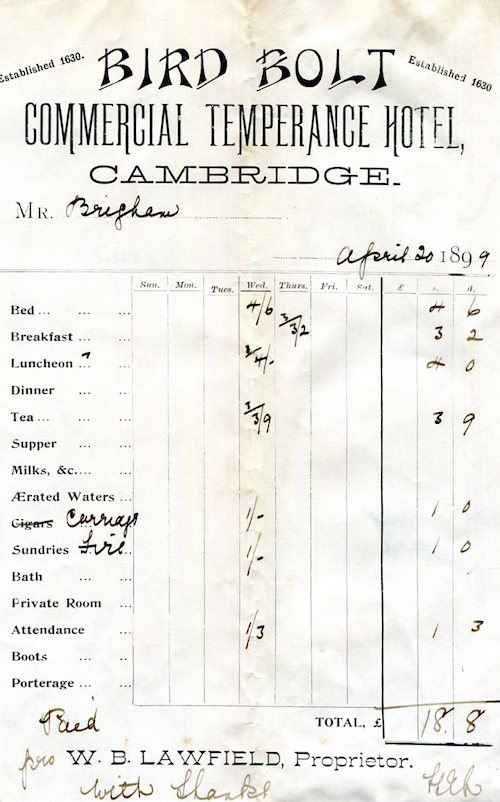 Established 1630. BIRD BOLT Established 1630
COMMERCIAL TEMPERANCE HOTEL,
CAMBRIDGE.
MR. Brigham
April 20 1899
Sun. Mon. Tues. Wed. Thurs. Fri. Sat. £ s. d.
Bed ... ... ... 4/6 4 6
Breakfast ... ... 3/2 3 2
Luncheon ... ... 4/- 4 0
Dinner ... ...
Tea ... ... ... 3/9 3 9
Supper ... ...
Milks, &c.... ...
Ærated Waters ...
Cigars Carriage 1/- 1 0
Sundries Fire ... 1/- 1 0
Bath ... ...
Private Room ...
Attendance ... 1/3 1 3
Boots ... ...
Porterage ... ...
Paid TOTAL, £ 18. 8
pro W. B. LAWFIELD, Proprietor.
with thanks